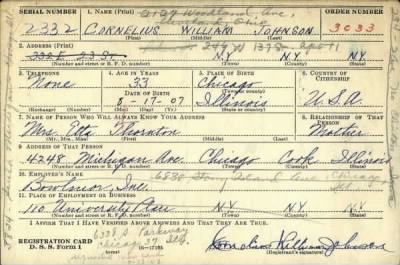 2127 Woodland Ave,
Cleveland, Ohio
SERIAL NUMBER 1. NAME (Print) ORDER NUMBER
2332 CORNELIUS WILLIAM JOHNSON 3033
(First) (Middle) (Last)
2. ADDRESS (Print)
332 E 23 St N.Y. N.Y. N.Y.
(Number and street or R. F. D. number) (Town) (County) (State)
3. TELEPHONE 4. AGE IN YEARS 5. PLACE OF BIRTH 6. COUNTRY OF CITIZENSHIP
None 33 Chicago
DATE OF BIRTH (Town or county)
8-17-07 Illinois U.S.A.
(Exchange) (Number) (Mo.) (Day) (Yr.) (State or country)
7. NAME OF PERSON WHO WILL ALWAYS KNOW YOUR ADDRESS 8. RELATIONSHIP OF THAT PERSON
Mrs. Etta Thornton Mother
(Mr., Mrs., Miss) (First) (Middle) (Last)
9. ADDRESS OF THAT PERSON
4248 Michigan Ave Chicago Cook Illinois
(Number and street or R. F. D. number) (Town) (County) (State)
10. EMPLOYER'S NAME
Bowlmor, Inc. Chicago
11. PLACE OF EMPLOYMENT OR BUSINESS
110 University Place N.Y. N.Y. N.Y.
(Number and street or R. F. D. number) (Town) (County) (State)
I AFFIRM THAT I HAVE VERIFIED ABOVE ANSWERS AND THAT THEY ARE TRUE.
6338 S. Parkway
Chicago Ill.
REGISTRATION CARD
D. S. S. Form 1
Cornelius William Johnson
(Registrant's signature)